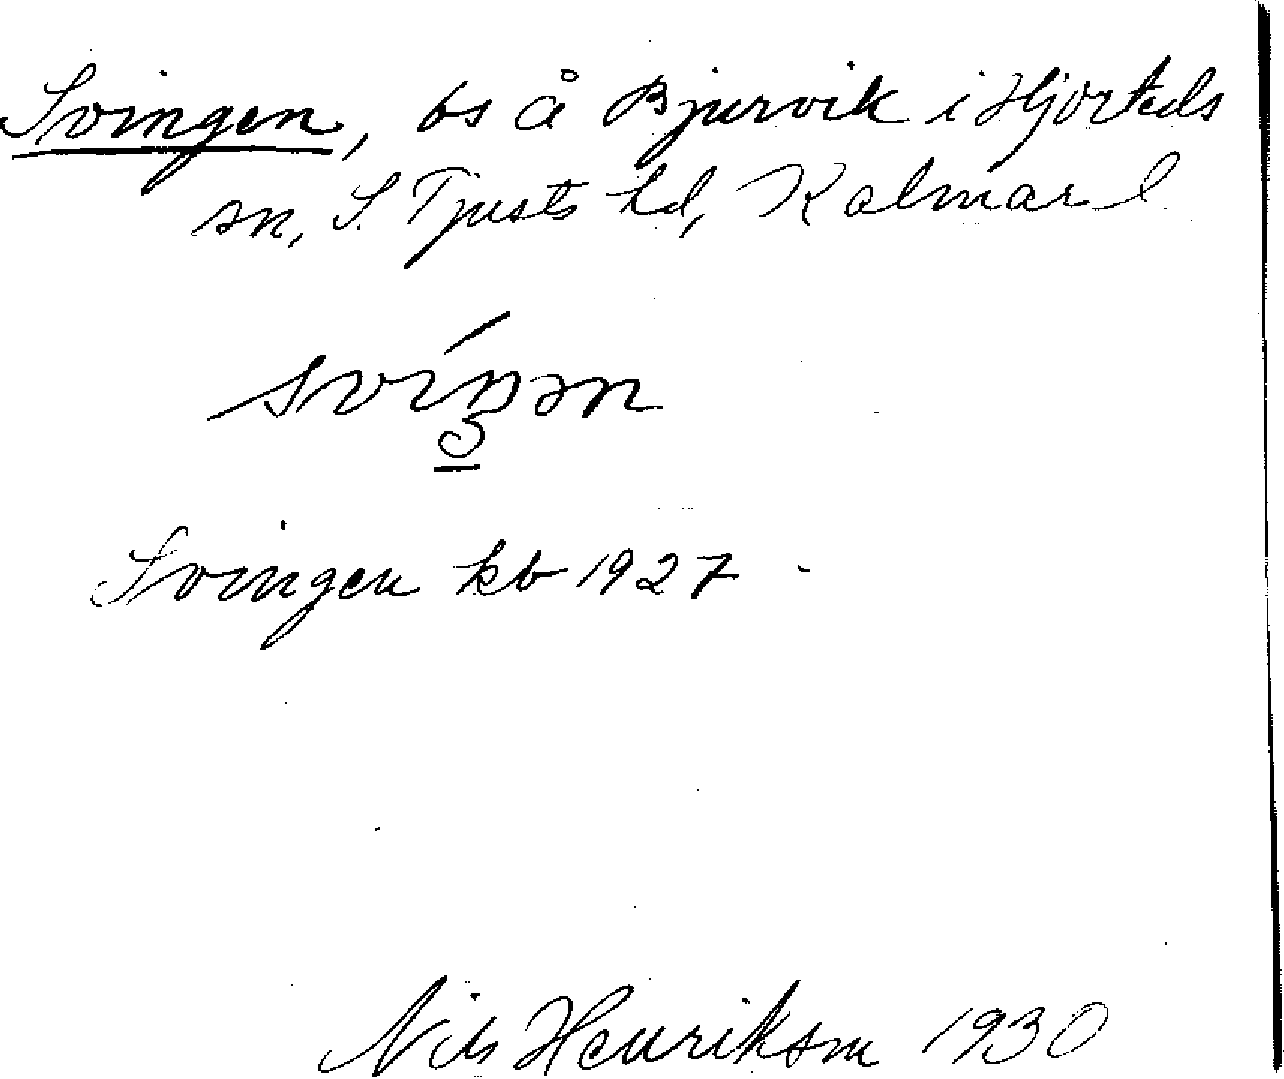 Svingen, bs å Bjurvik i Hjorteds
sn, S. Tjusts hd, Kalmar l
svíŋən
Svingen kb 1927
Nils Henrikson 1930